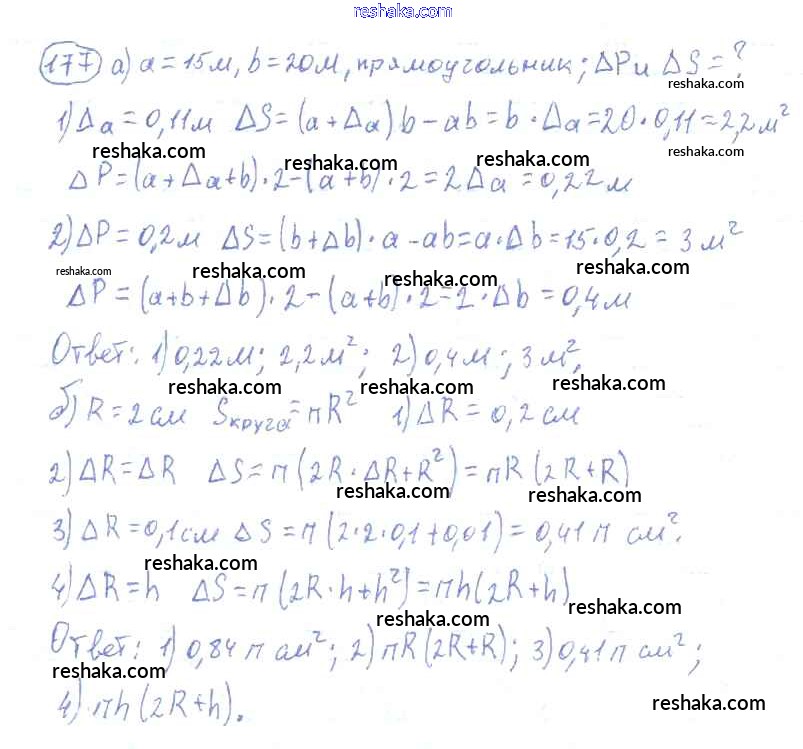 reshaka.com
177 а) a = 15м, b = 20м, прямоугольник; ΔP и ΔS = ?
reshaka.com
1) Δa = 0,11м ΔS = (a + Δa) b - ab = b · Δa = 20 · 0,11 = 2,2 м²
reshaka.com reshaka.com reshaka.com reshaka.com
ΔP = (a + Δa + b) · 2 - (a + b) · 2 = 2Δa = 0,22 м
2) ΔP = 0,2 м ΔS = (b + Δb) · a - ab = a · Δb = 15 · 0,2 = 3 м²
reshaka.com reshaka.com reshaka.com reshaka.com
ΔP = (a + b + Δb) · 2 - (a + b) · 2 = 2 · Δb = 0,4 м
Ответ: 1) 0,22 м; 2,2 м²; 2) 0,4 м; 3 м².
reshaka.com reshaka.com
б) R = 2 см Sкруга = πR² 1) ΔR = 0,2 см
2) ΔR = ΔR ΔS = π (2R · ΔR + R²) = πR (2R + R)
reshaka.com reshaka.com
3) ΔR = 0,1 см ΔS = π (2·2·0,1 + 0,01) = 0,41 π см².
reshaka.com
4) ΔR = h ΔS = π (2R · h + h²) = πh (2R + h)
reshaka.com reshaka.com
Ответ: 1) 0,84 π см²; 2) πR (2R + R); 3) 0,41 π см²;
reshaka.com
4) πh (2R + h).
reshaka.com